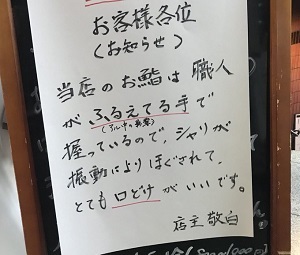 お客様各位
(お知らせ)
当店のお鮨は 職人
が ふるえてる手で
(アル中の為)
握っているので、シャリが
振動によりほぐされて、
とても 口どけが いいです。
店主 敬白